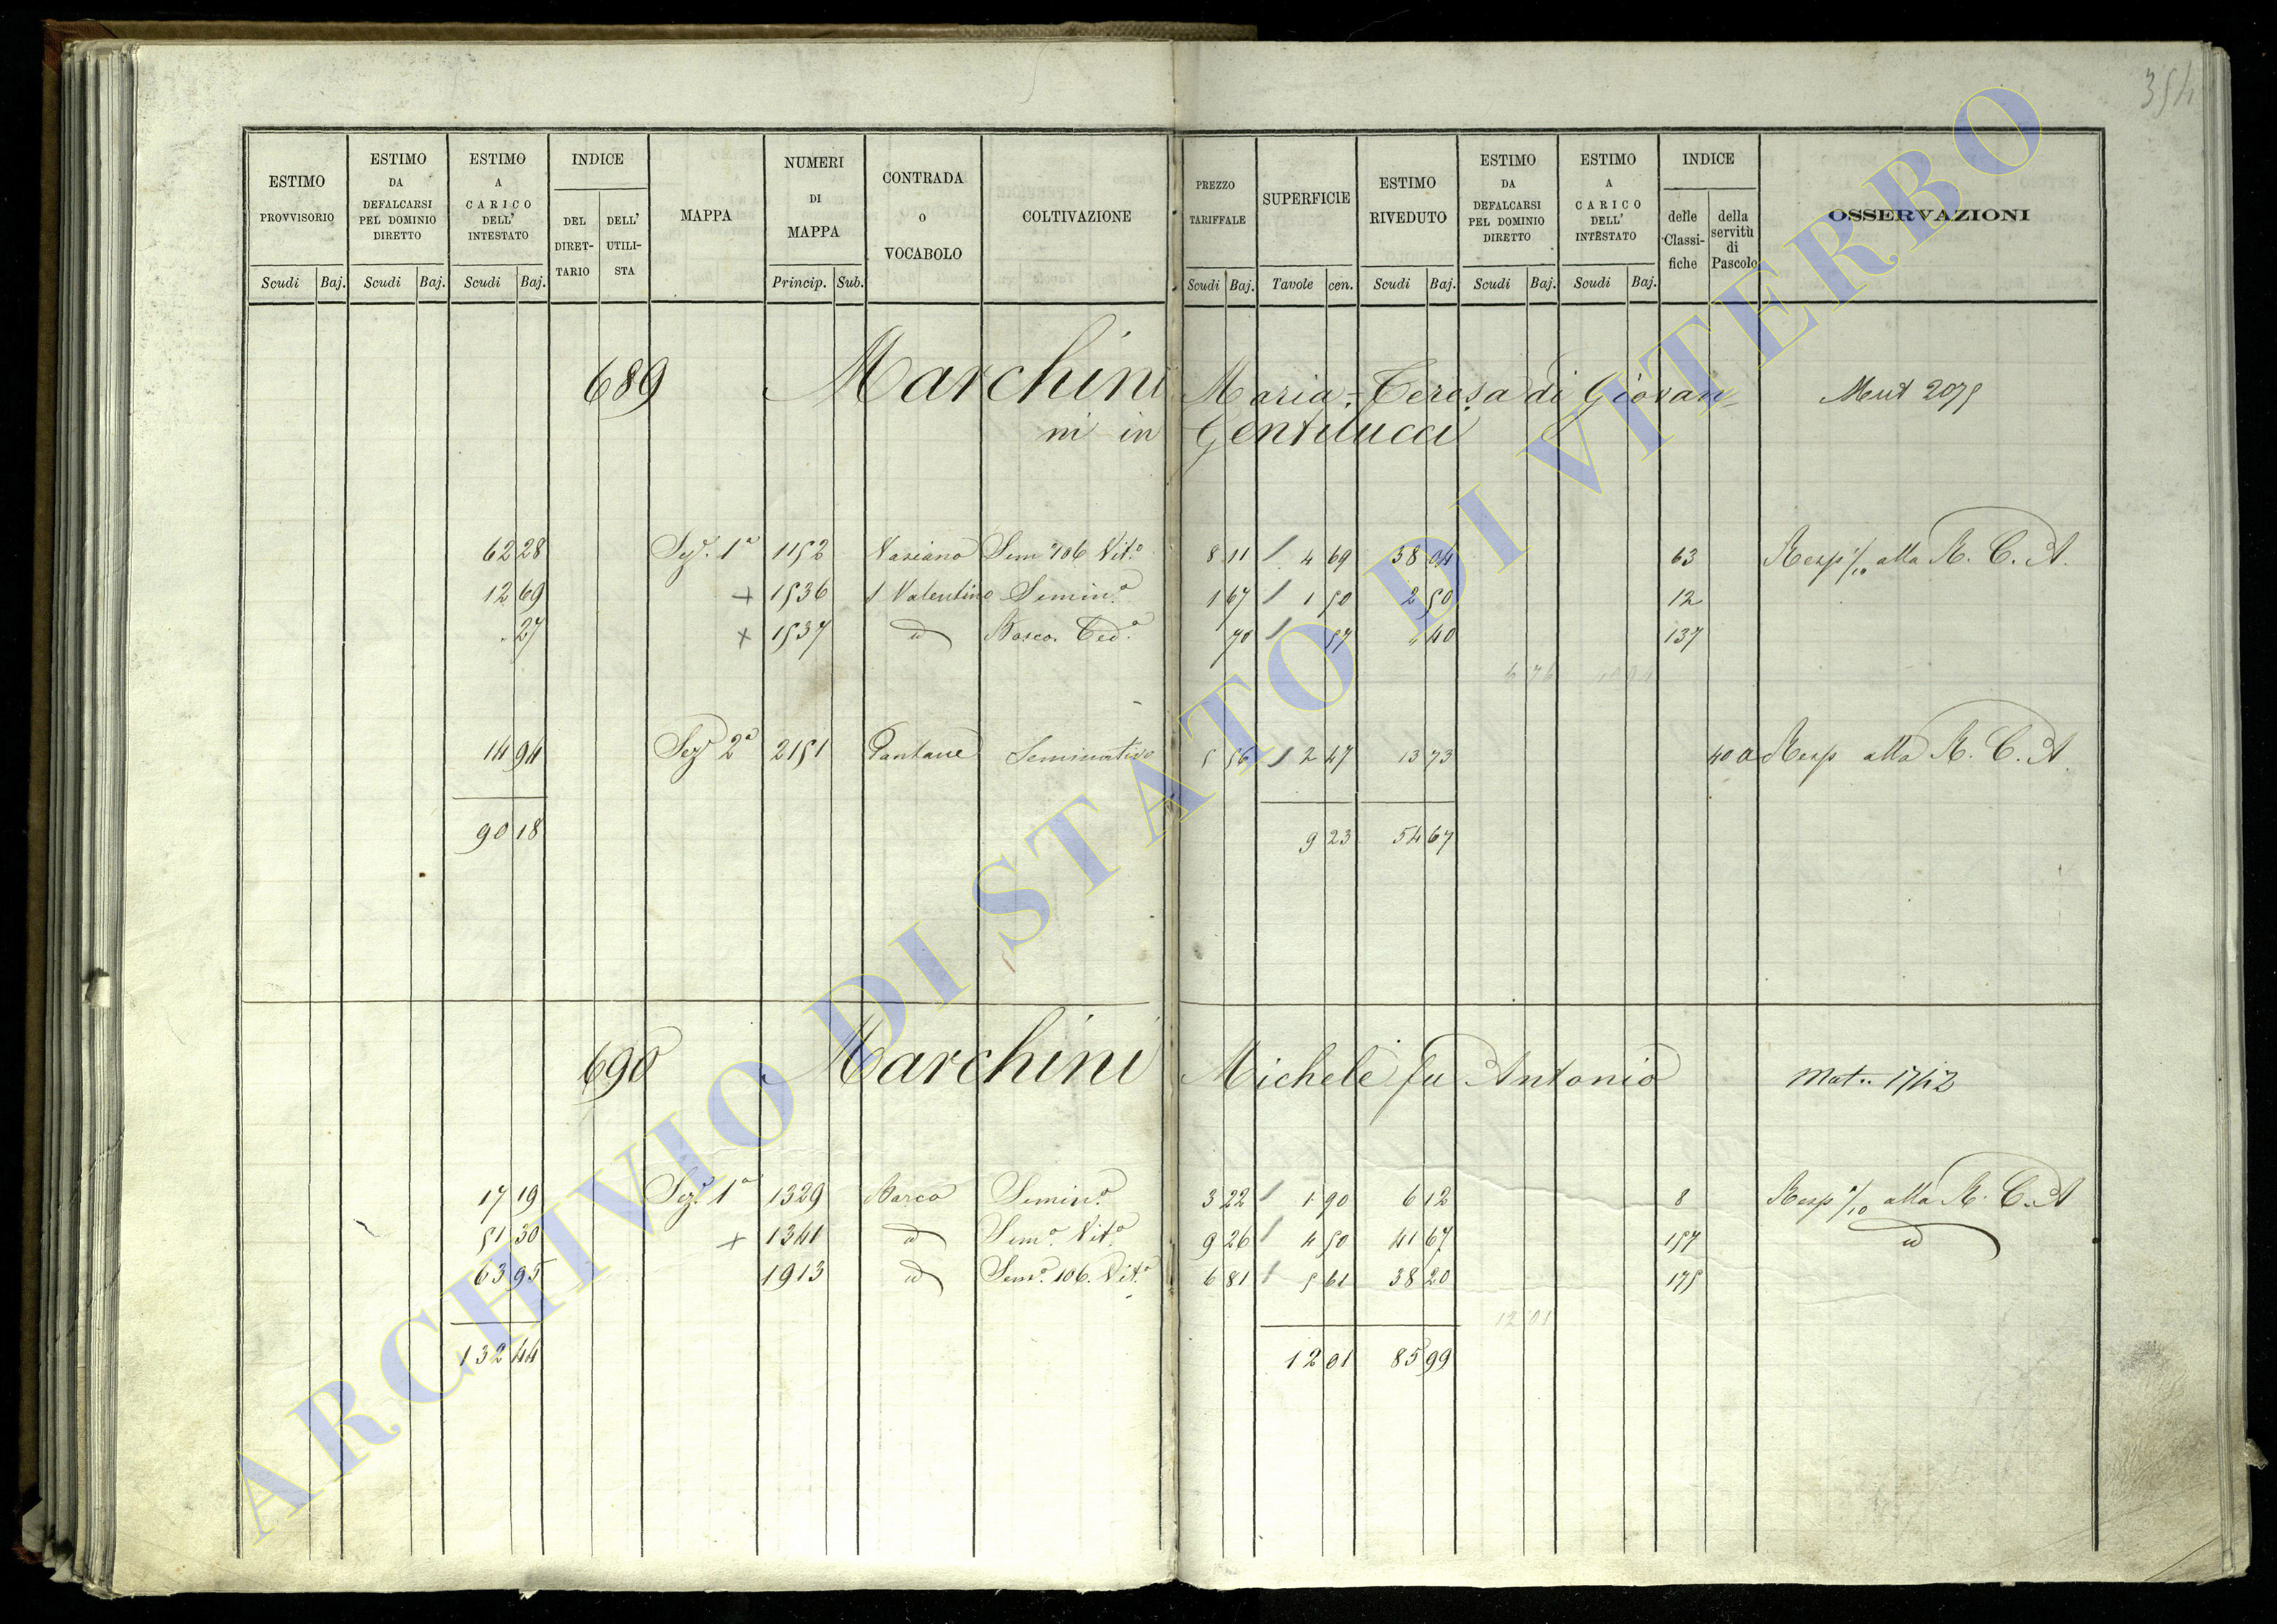 354
ESTIMO PROVVISORIO Scudi Baj.
ESTIMO DA DEFALCARSI PEL DOMINIO DIRETTO Scudi Baj.
ESTIMO A CARICO DELL' INTESTATO Scudi Baj.
INDICE DEL DIRETTARIO DELL' UTILISTA
MAPPA
NUMERI DI MAPPA Princip. Sub.
CONTRADA O VOCABOLO
COLTIVAZIONE
PREZZO TARIFFALE Scudi Baj.
SUPERFICIE Tavole cen.
ESTIMO RIVEDUTO Scudi Baj.
ESTIMO DA DEFALCARSI PEL DOMINIO DIRETTO Scudi Baj.
ESTIMO A CARICO DELL' INTESTATO Scudi Baj.
INDICE delle Classifiche della servitù di Pascolo
OSSERVAZIONI
689 Marchini Maria Teresa di Giovan=
ni in Gentilucci
62 28 Sez. 1a 1152 Sem 706 Vit.o 8 11 4 69 38 04 63 Resp alla R. C. A.
12 69 + 1536 S Valentino Semin.o 1 67 1 50 2 50 12
27 + 1537 id Bosco Ced.o 70 57 40 137
6 76
14 94 Sez 2a 2151 Pantane Seminativo 5 56 2 47 13 73 40 a Resp alla R. C. A.
90 18 9 23 54 67
690 Marchini Michele fu Antonio Mat.. 1742
17 19 Sez. 1a 1329 Barco Semin.o 3 22 1 90 6 12 8 Resp alla R. C. A
51 30 + 1341 id Sem.o Vit.o 9 26 4 50 41 67 157 id
63 95 1913 id Sem.o 106. Vit.o 6 81 5 61 38 20 175
12 01
132 44 12 01 85 99
ARCHIVIO DI STATO DI VITERBO